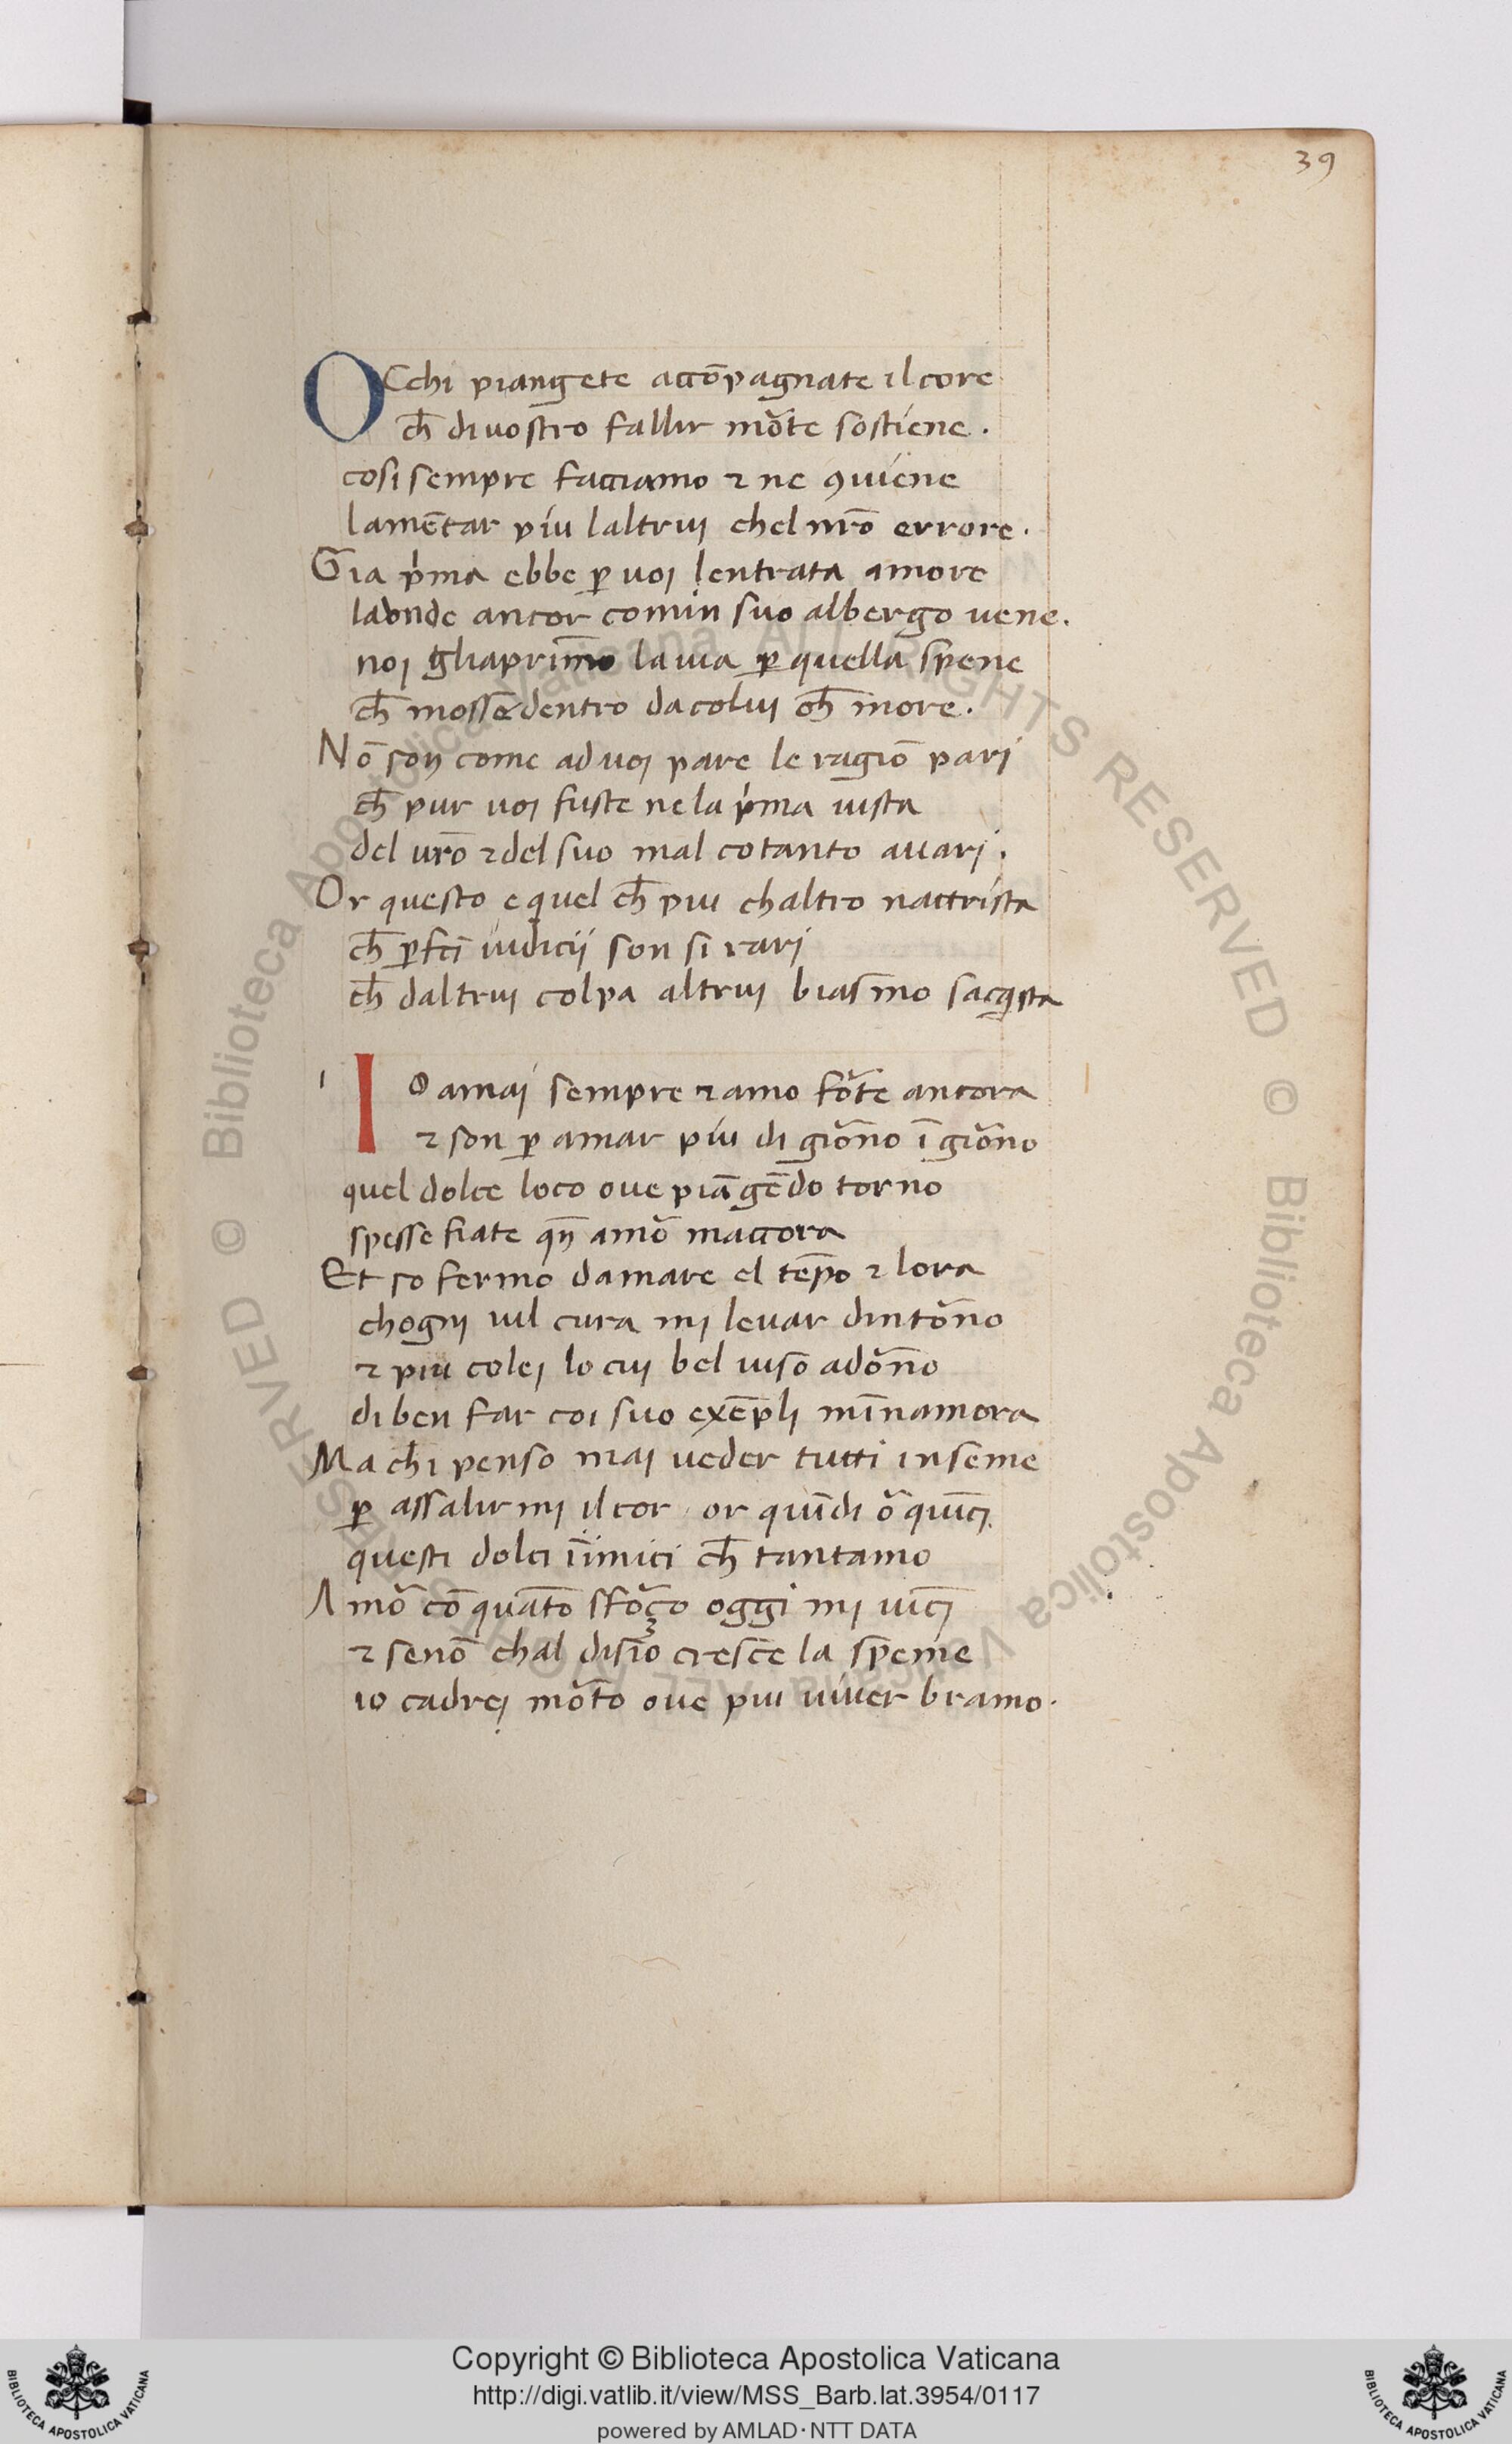 39
OCchi piangete accōpagnate il core
ch̄ di vostro fallir mõte sostiene .
cosi sempre facciamo ⁊ ne ꝯuiene
lamētar piu laltrui chel nr̄o errore .
Gia p̍ma ebbe ꝑ uoi lentrata amore
laonde ancor comin suo albergo uene .
noi gliaprim̄o la uia ꝑ quella spene
ch̄ mosse dentro da colui ch̄ more .
Nō son come ad uoi pare le ragiō pari
ch̄ pur uoi fuste ne la p̍ma uista
del vr̄o ⁊ del suo mal cotanto auari .
Or questo e quel ch̄ piu chaltro nattrista
ch̄ ꝑfc̄i iudicii son si rari
ch̄ daltrui colpa altrui biasm̄o sacq̍sta
IO amai sempre ⁊ amo fõte ancora
⁊ son ꝑ amar piu di giõno ī giõno
quel dolce loco oue piāgēdo torno
spesse fiate qn̄ amõ maccora
Et so fermo damare el tēpo ⁊ lora
chogni uil cura mi leuar dintõno
⁊ piu colei lo cui bel uiso adõno
di ben far coi suo exēpli mīnamora
Ma chi penso mai ueder tutti inseme
ꝑ assalir mi il cor or quīdi õ quīci
questi dolci īimici ch̄ tantamo
Amõ cō quāto sfõço oggi mi uīci
⁊ se nō chal disio cresce la speme
io cadrei mõto oue piu uiuer bramo .
© Biblioteca Apostolica Vaticana ALL RIGHTS RESERVED © Biblioteca Apostolica Vaticana ALL RIGHTS RESERVED
Copyright © Biblioteca Apostolica Vaticana
http://digi.vatlib.it/view/MSS_Barb.lat.3954/0117
powered by AMLAD·NTT DATA
BIBLIOTECA APOSTOLICA VATICANA
BIBLIOTECA APOSTOLICA VATICANA